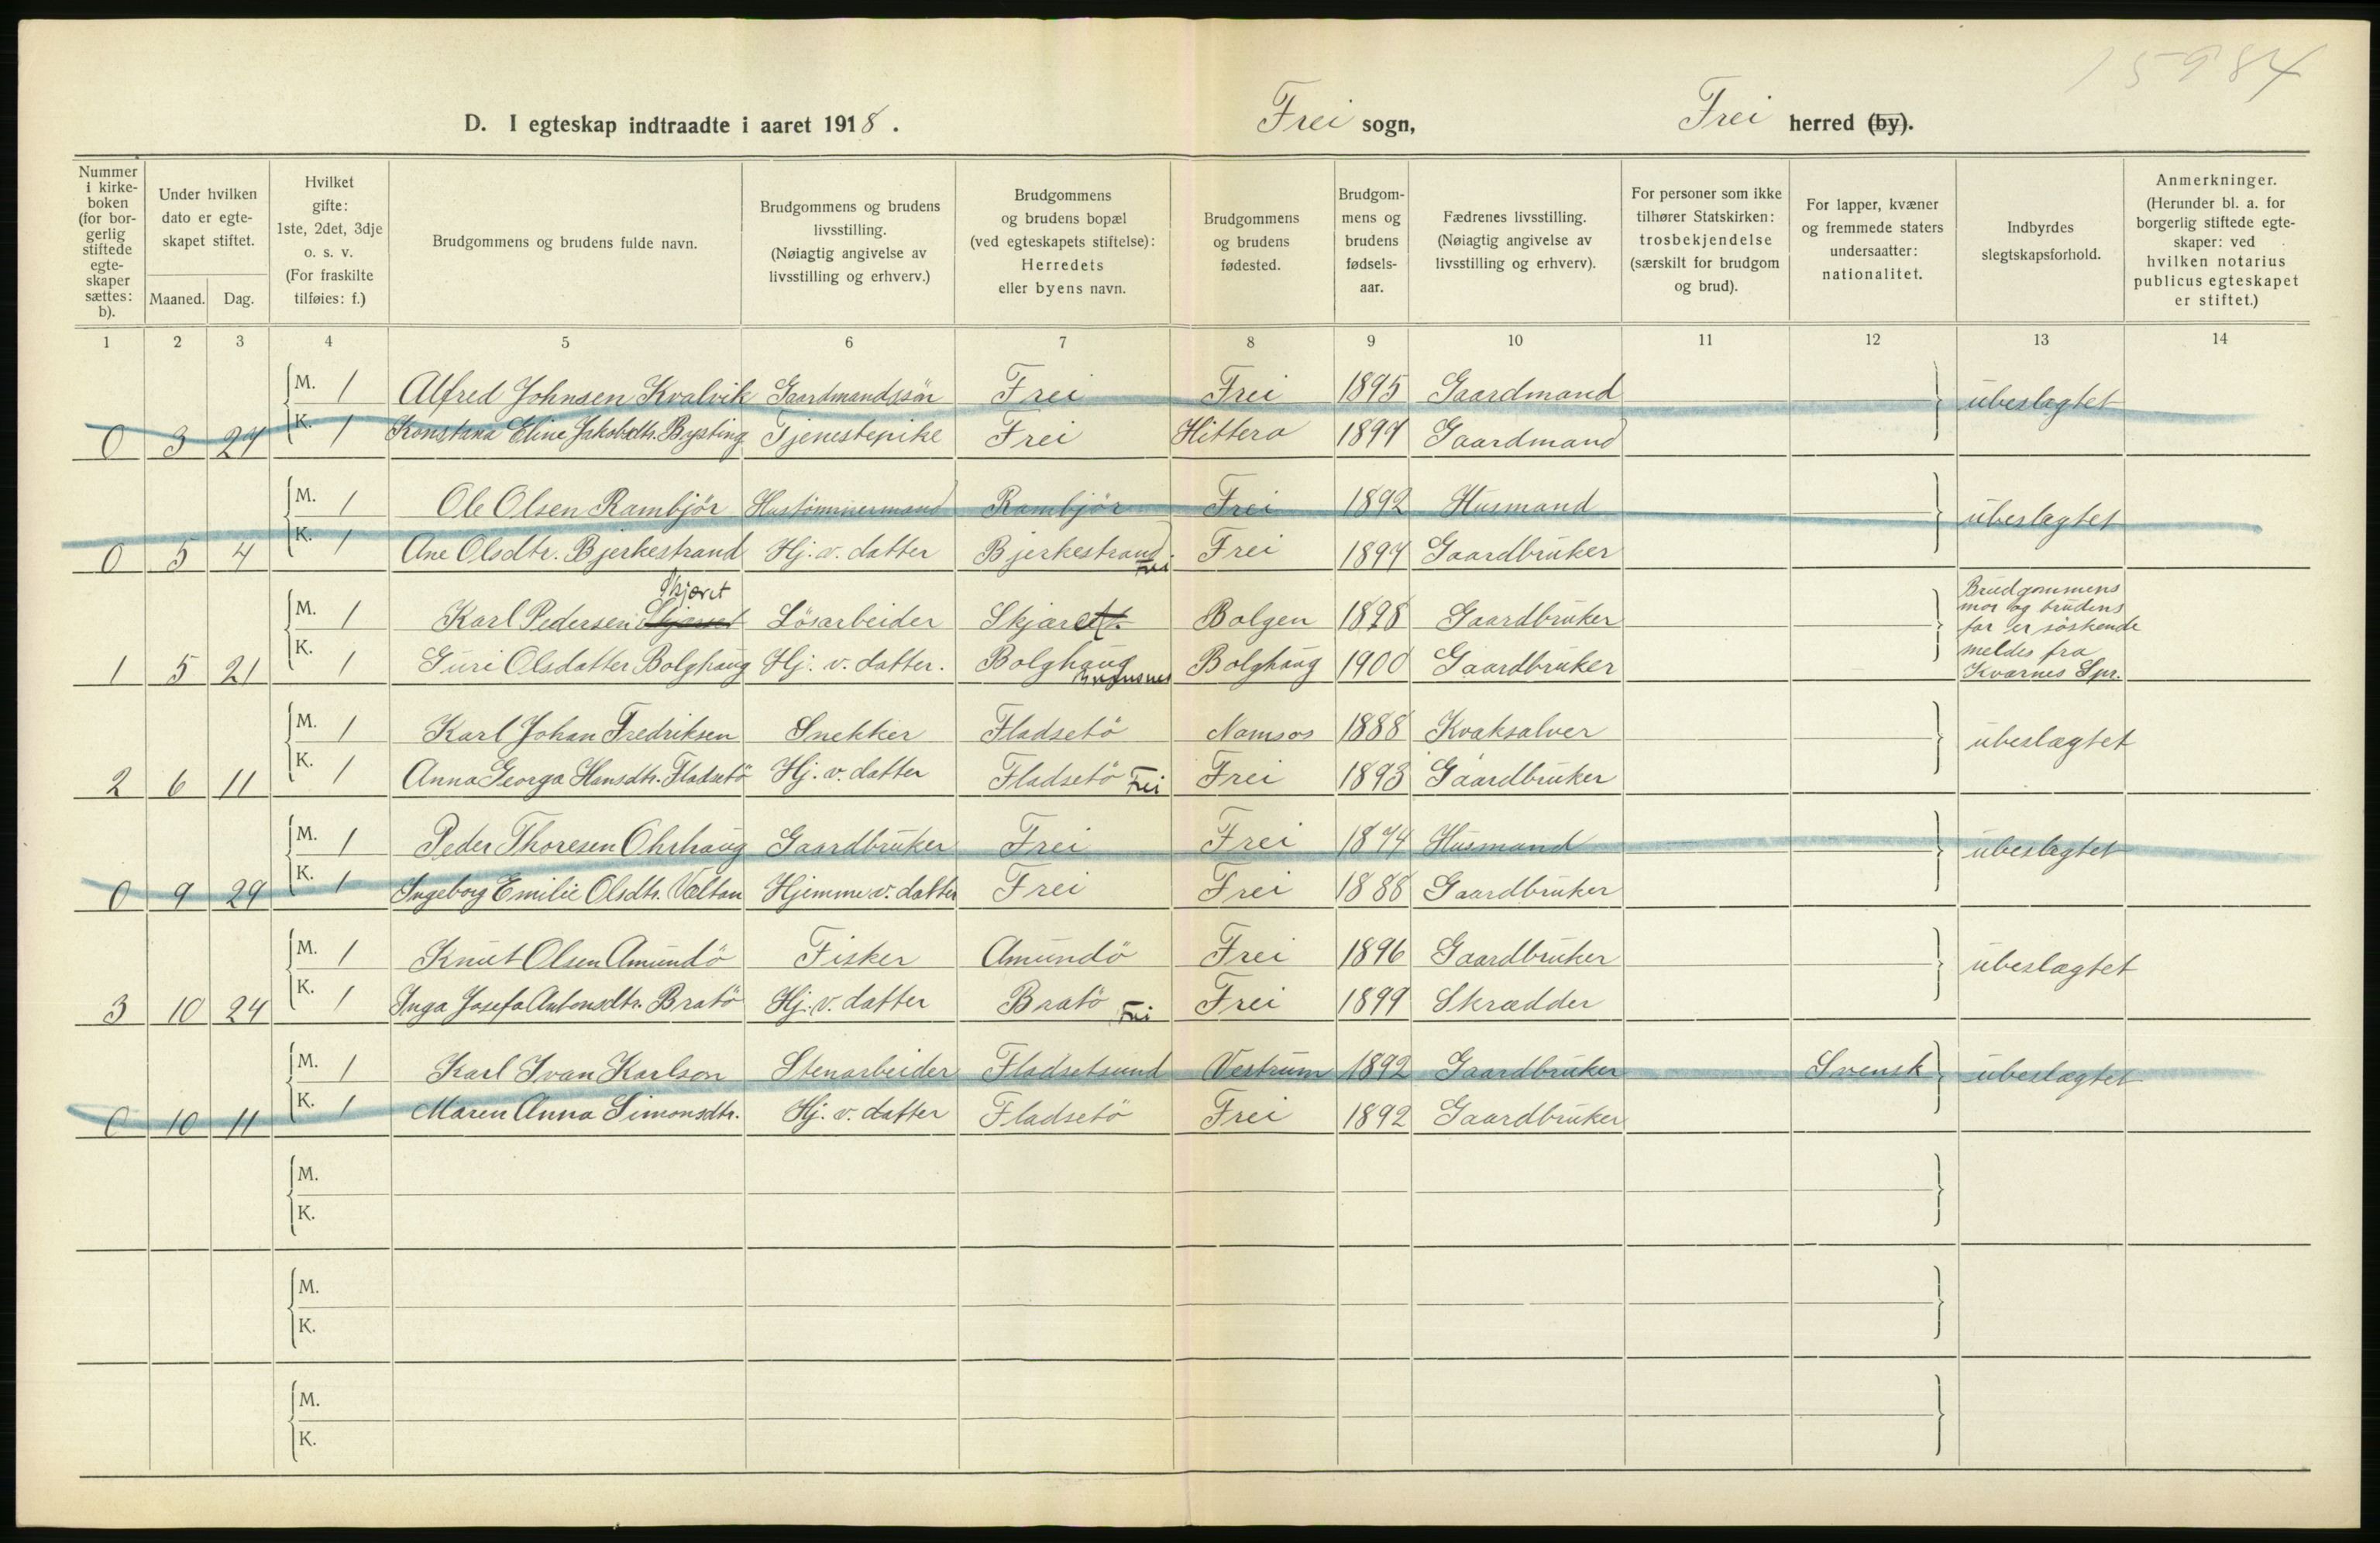 15984
D. I egteskap indtraadte i aaret 1918. Frei sogn, Frei herred (by).
Nummer i kirkeboken (for borgerlig stiftede egteskaper sættes: b).
Under hvilken dato er egteskapet stiftet.
Maaned. Dag.
Hvilket gifte: 1ste, 2det, 3dje o. s. v. (For fraskilte tilføies: f.)
Brudgommens og brudens fulde navn.
Brudgommens og brudens livsstilling. (Nøiagtig angivelse av livsstilling og erhverv.)
Brudgommens og brudens bopæl (ved egteskapets stiftelse): Herredets eller byens navn.
Brudgommens og brudens fødested.
Brudgommens og brudens fødselsaar.
Fædrenes livsstilling. (Nøiagtig angivelse av livsstilling og erhverv).
For personer som ikke tilhører Statskirken: trosbekjendelse (særskilt for brudgom og brud).
For lapper, kvæner og fremmede staters undersaatter: nationalitet.
Indbyrdes slegtskapsforhold.
Anmerkninger. (Herunder bl. a. for borgerlig stiftede egteskaper: ved hvilken notarius publicus egteskapet er stiftet.)
1 2 3 4 5 6 7 8 9 10 11 12 13 14
M. 1 Alfred Johnsen Kvalvik Gaardmandssön Frei Frei 1895 Gaardmand ubeslagtet
0 3 24 K. 1 Konstana Eline Jakobdtr. Bysting Tjenestepike Frei Hittera 1897 Gaardmand
M. 1 Ole Olsen Rambjör Hustömmermand Rambjör Frei 1892 Husmand ubeslegtet
0 5 4 K. 1 Ane Olsdtr. Bjerkestrand Hj. v. datter Bjerkestrand. Frei Frei 1897 Gaardbruker
M. 1 Karl Pedersen Skjæret Lösarbeider Skjæret Bolgen 1898 Gaardbruker Brudgommens mor og brudens far er söskende meldes fra Kvernes Spr.
1 5 21 K. 1 Guri Olsdatter Bolghaug Hj. v. datter. Bolghaug Bolghaug 1900 Gaardbruker
M. 1 Karl Johan Fredriksen Snekker Fladsetö Namsos 1888 Kvaksalver ubeslægtet
2 6 11 K. 1 Anna Georga Hansdtr. Fladsetö Hj. v. datter Fladsetö Frei Frei 1893 Gaardbruker
M. 1 Peder Thoresen Ohrhaug Gaardbruker Frei Frei 1874 Husmand ubeslegtet
0 9 29 K. 1 Ingeborg Emilie Olsdtr. Valtan Hjemme v. datter Frei Frei 1888 Gaardbruker
M. 1 Knut Olsen Amundö Fisker Amundö Frei 1896 Gaardbruker ubeslægtet
3 10 24 K. 1 Inga Josefa Antonsdtr. Bratö Hj. v. datter Bratö Frei Frei 1899 Skrædder
M. 1 Karl Ivan Karlson Stenarbeider Fladsetsund Vestrum 1892 Gaardbruker Svensk ubeslægtet
0 10 11 K. 1 Maren Anna Simonsdtr. Hj. v. datter Fladsetö Frei 1892 Gaardbruker
M.
K.
M.
K.
M.
K.